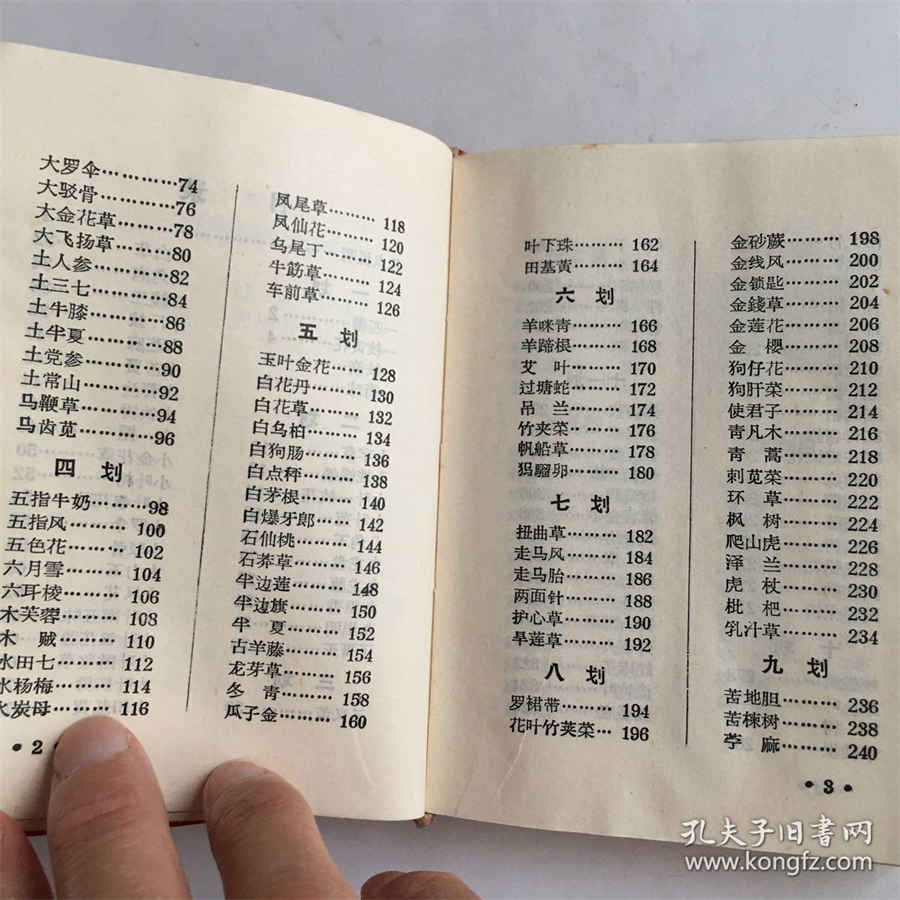 大罗伞…………74
大驳骨…………76
大金花草……78
大飞扬草……80
土人参………82
土三七………84
土牛膝………86
土半夏………88
土党参………90
土常山………92
马鞭草………94
马齿苋………96
四 划
五指牛奶……98
五指风………100
五色花………102
六月雪………104
六耳棱………106
木芙蓉………108
木 贼………110
水田七………112
水杨梅………114
火炭母………116
凤尾草………118
凤仙花………120
乌尾丁………122
牛筋草………124
车前草………126
五 划
玉叶金花……128
白花丹………130
白花草………132
白乌桕………134
白狗肠………136
白点秤………138
白茅根………140
白爆牙郎……142
石仙桃………144
石荠草………146
半边莲………148
半边旗………150
半 夏………152
古羊藤………154
龙芽草………156
冬 青………158
瓜子金………160
• 2
叶下珠………162
田基黄………164
六 划
羊咪青………166
羊蹄根………168
艾 叶………170
过塘蛇………172
吊 兰………174
竹夹菜………176
帆船草………178
七 划
扭曲草………182
走马风………184
走马胎………186
两面针………188
护心草………190
旱莲草………192
八 划
罗裙带………194
花叶竹荚菜…196
金砂蕨………198
金线风………200
金锁匙………202
金錢草………204
金莲花………206
金 樱………208
狗仔花………210
狗肝菜………212
使君子………214
青凡木………216
青 蒿………218
刺苋菜………220
环 草………222
枫 树………224
爬山虎………226
泽 兰………228
虎 杖………230
枇 杷………232
乳汁草………234
九 划
苦地胆………236
苦楝树………238
苧 麻………240
• 3 •
孔夫子旧書网
www.kongfz.com